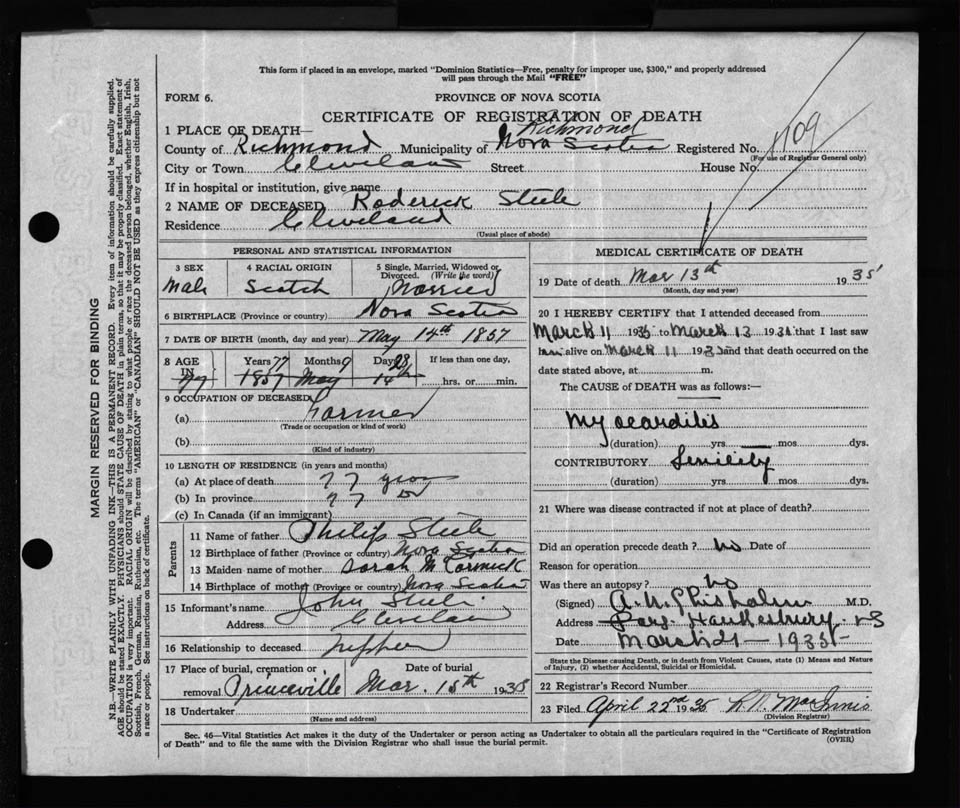 This form if placed in an envelope, marked "Dominion Statistics—Free, penalty for improper use, $300," and properly addressed
will pass through the Mail "FREE"
FORM 6.
PROVINCE OF NOVA SCOTIA
CERTIFICATE OF REGISTRATION OF DEATH
1 PLACE OF DEATH—
Richmond
County of Richmond Municipality of Nova Scotia Registered No. 1109
(For use of Registrar General only)
City or Town Cleveland Street House No.
If in hospital or institution, give name
2 NAME OF DECEASED Roderick Steele
Residence Cleveland
(Usual place of abode)
PERSONAL AND STATISTICAL INFORMATION
3 SEX 4 RACIAL ORIGIN 5 Single, Married, Widowed or Divorced. (Write the word)
Male Scotch Married
6 BIRTHPLACE (Province or country) Nova Scotia
7 DATE OF BIRTH (month, day and year) May 14th 1857
8 AGE IN Years 77 Months 9 Days 28 If less than one day,
77 1857 May 14th hrs. or min.
9 OCCUPATION OF DECEASED
(a) Farmer
(Trade or occupation or kind of work)
(b)
(Kind of industry)
10 LENGTH OF RESIDENCE (in years and months)
(a) At place of death 77 years
(b) In province 77 do
(c) In Canada (if an immigrant)
Parents
11 Name of father Philip Steele
12 Birthplace of father (Province or country) Nova Scotia
13 Maiden name of mother Sarah McCormick
14 Birthplace of mother (Province or country) Nova Scotia
15 Informant's name John Steele
Address Cleveland
16 Relationship to deceased Nephew
17 Place of burial, cremation or Date of burial
removal Princeville Mar. 15th 1935
18 Undertaker
(Name and address)
MEDICAL CERTIFICATE OF DEATH
19 Date of death Mar 13th 1935
(Month, day and year)
20 I HEREBY CERTIFY that I attended deceased from
March 11 1935 to March 13 1935 that I last saw
him alive on March 11 1935 and that death occurred on the
date stated above, at m.
The CAUSE of DEATH was as follows:—
Myocarditis
(duration) yrs. mos. dys.
CONTRIBUTORY Senility
(duration) yrs. mos. dys.
21 Where was disease contracted if not at place of death?
Did an operation precede death? no Date of
Reason for operation
Was there an autopsy? no
(Signed) A. N. Chisholm M.D.
Address Port Hawkesbury. NS
Date March 21 — 1935
State the Disease causing Death, or in death from Violent Causes, state (1) Means and Nature
of Injury, (2) whether Accidental, Suicidal or Homicidal.
22 Registrar's Record Number
23 Filed April 22nd 1935 MacInnis
(Division Registrar)
Sec. 46—Vital Statistics Act makes it the duty of the Undertaker or person acting as Undertaker to obtain all the particulars required in the "Certificate of Registration
of Death" and to file the same with the Division Registrar who shall issue the burial permit.
(OVER)
MARGIN RESERVED FOR BINDING
N.B.—WRITE PLAINLY WITH UNFADING INK—THIS IS A PERMANENT RECORD. Every item of information should be carefully supplied.
AGE should be stated EXACTLY. PHYSICIANS should STATE CAUSE OF DEATH in plain terms, so that it may be properly classified. Exact statement of
OCCUPATION is very important. RACIAL ORIGIN will be described by stating to what people or race the deceased person belonged, whether English, Irish,
Scottish, French, German, Russian, Ruthenian, etc. The terms "AMERICAN" or "CANADIAN" SHOULD NOT BE USED as they express citizenship but not
a race or people. See instructions on back of certificate.